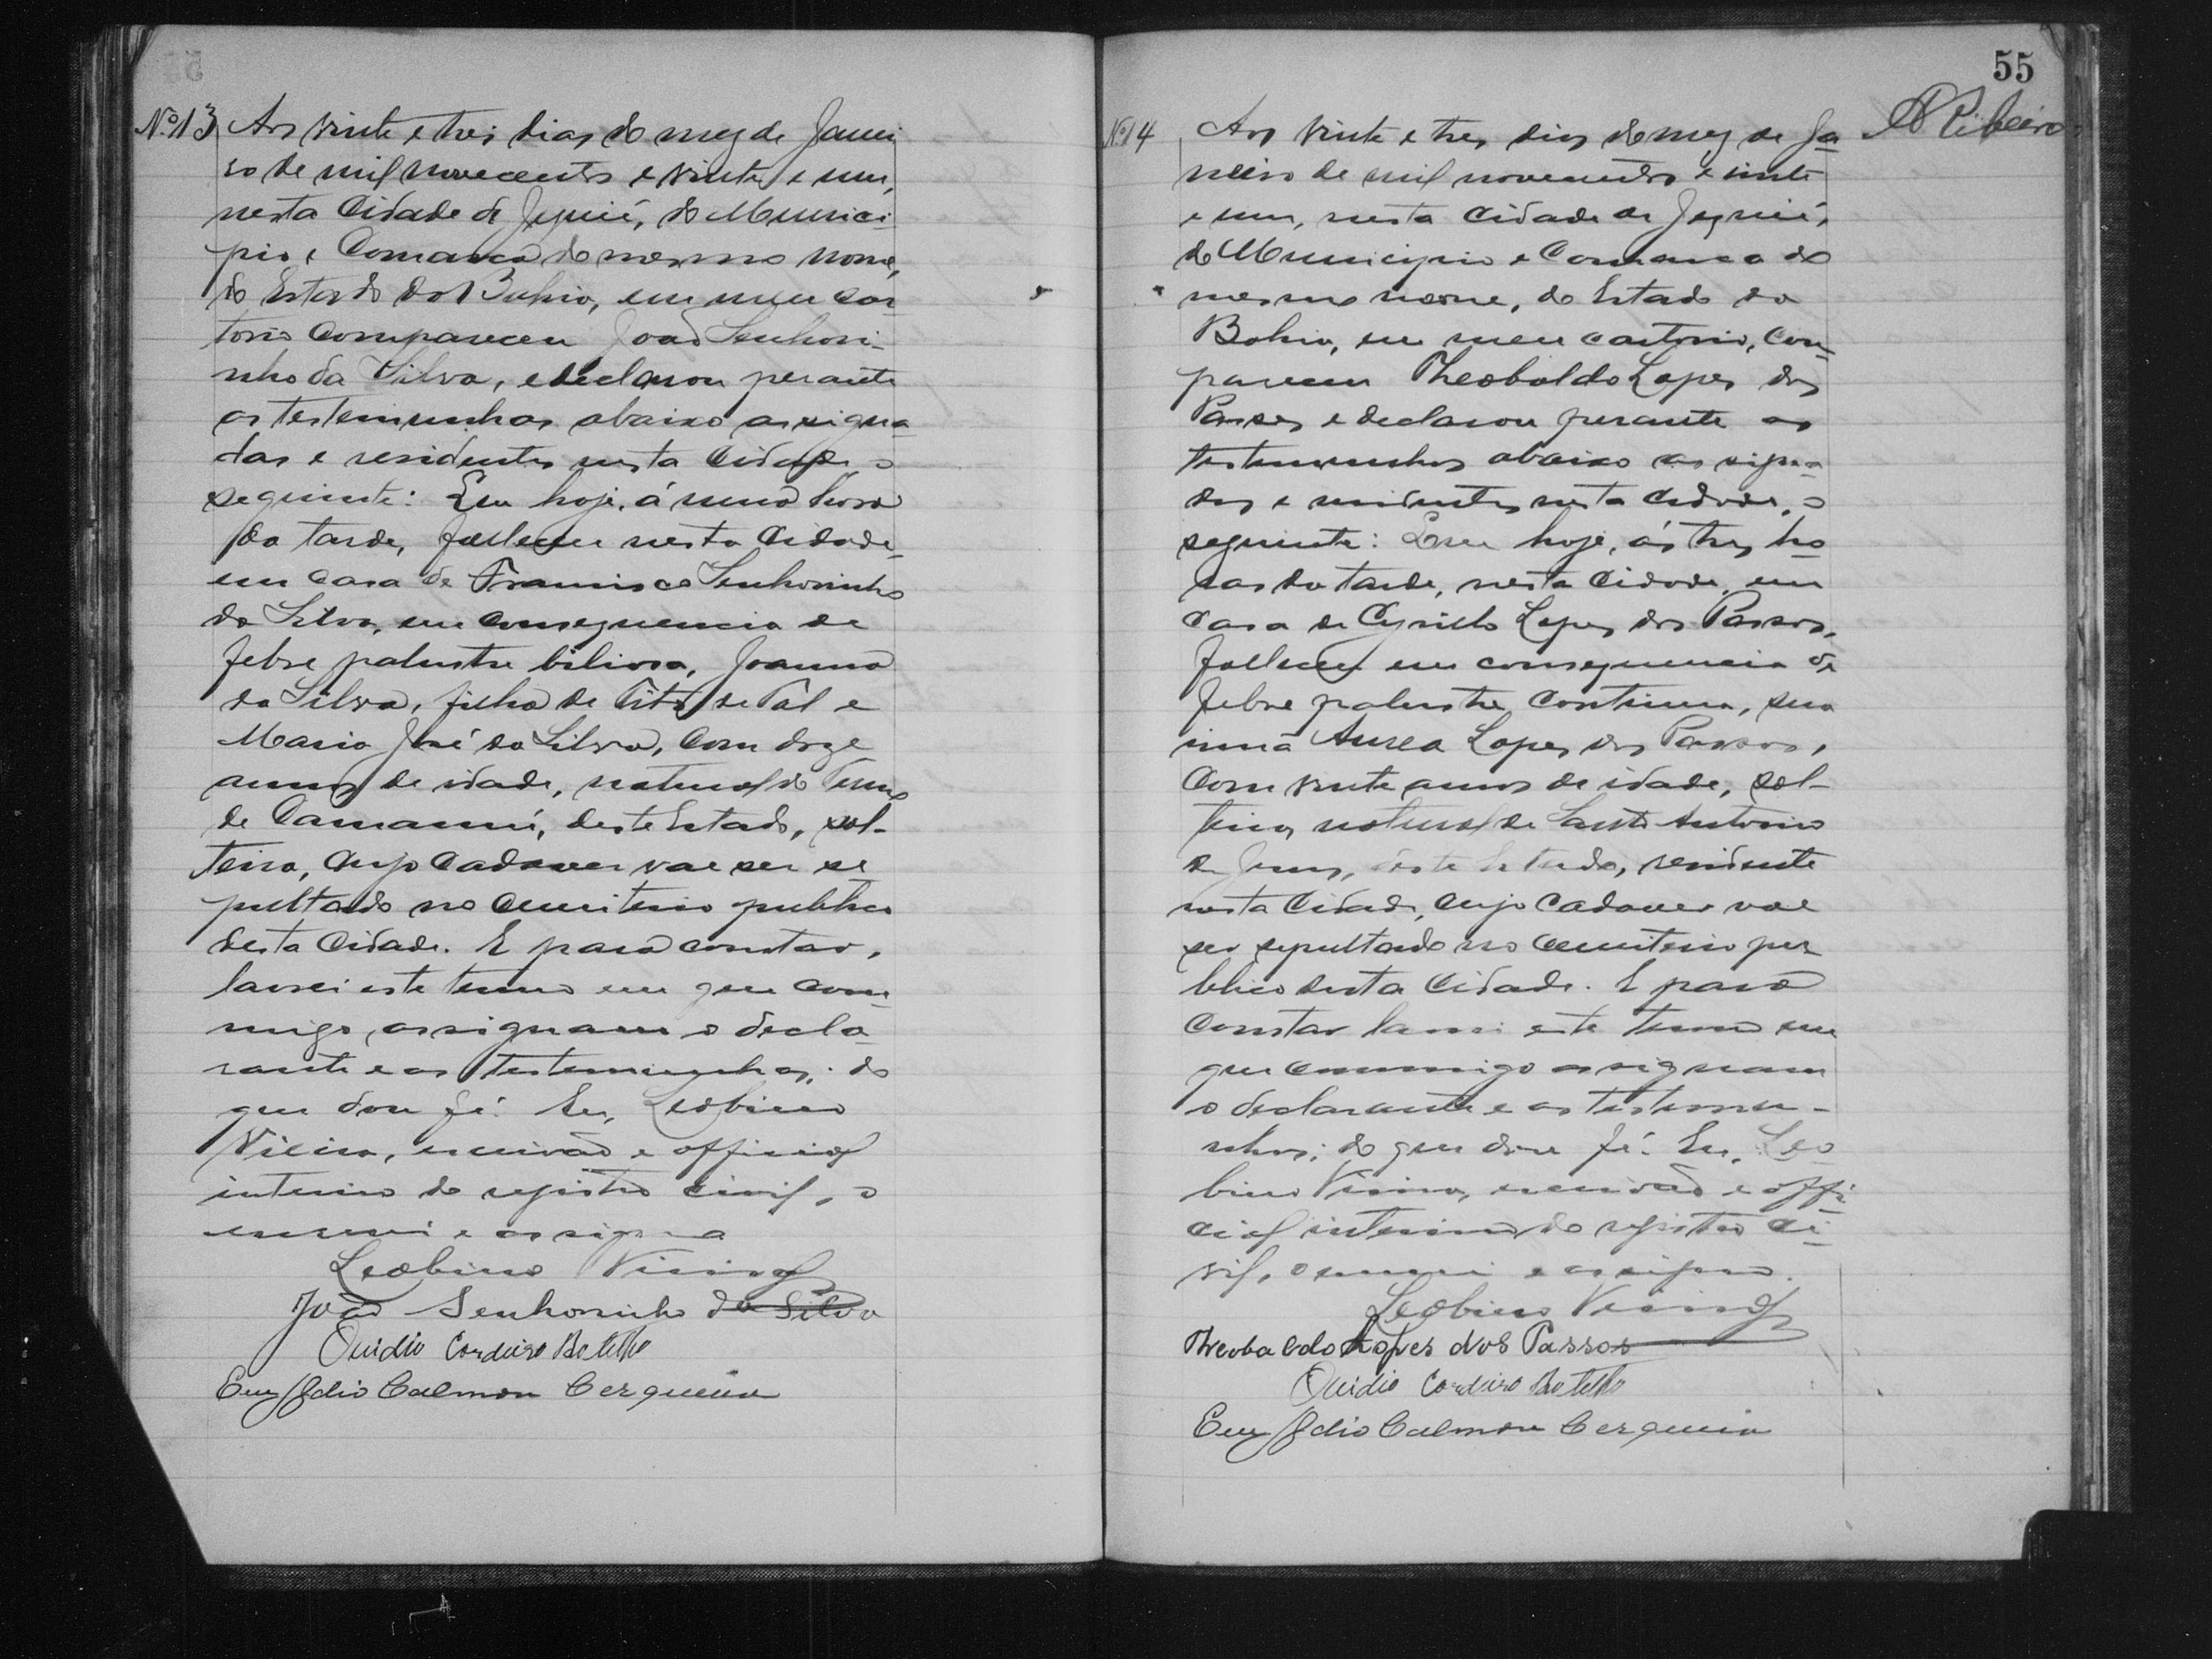 55
A Ribeiro
Nº 13 Aos vinte e tres dias do mez de Janei
ro de mil novecentos e vinte e um,
nesta Cidade de Jequié, do Munici-
pio e Comarca do mesmo nome,
do Estado da Bahia, em meu car
torio compareceu João Senhori-
nho da Silva, e declarou perante
as testemunhas abaixo assigna
das e residentes nesta Cidade, o
seguinte: Em hoje, á uma hora
da tarde, falleceu nesta Cidade
em casa de Francisco Senhorinho
da Silva, em consequencia de
febre palustre biliosa, Joanna
da Silva, filha de Tito de Tal e
Maria José da Silva, com doze
annos de idade, natural do Termo
de Camamú, deste Estado, sol-
teira, cujo cadaver vae ser se
pultado no cemiterio publico
desta Cidade. E para constar,
lavrei este termo em que com-
migo assignam o decla-
rante e as testemunhas; do
que dou fé. Eu, Leobino
Vieira, escrivão e official
interino do registro civil, o
escrevi e assigno
Leobino Vieira
João Senhorinho da Silva
Ouidio Cordeiro Botelho
Euzidio Calmon Cerqueira
Nº 14 Aos vinte e tres dias do mez de Ja
neiro de mil novecentos e vinte
e um, nesta Cidade de Jequié,
do Municipio e Comarca do
mesmo nome, do Estado da
Bahia, em meu cartorio, com-
pareceu Theobaldo Lopes dos
Passos e declarou perante as
testemunhas abaixo assigna
das e residentes nesta cidade, o
seguinte: Em hoje, ás tres ho
ras da tarde, nesta Cidade, em
casa de Cyrillo Lopes dos Passos,
falleceu em consequencia de
febre palustre continua, sua
irmã Aurea Lopes dos Passos,
com vinte annos de idade, sol-
teira, natural de Santo Antonio
de Jesus, deste Estado, residente
nesta Cidade, cujo cadaver vae
ser sepultado no cemiterio pu-
blico desta Cidade. E para
constar lavrei este termo em
que commigo assignam
o declarante e as testemu-
nhas; do que dou fé. Eu, Leo
bino Vieira, escrivão e offi-
cial interino do registro ci-
vil, o escrevi e assigno.
Leobino Vieira
Theobaldo Lopes dos Passos
Ouidio Cordeiro Botelho
Euzidio Calmon Cerqueira